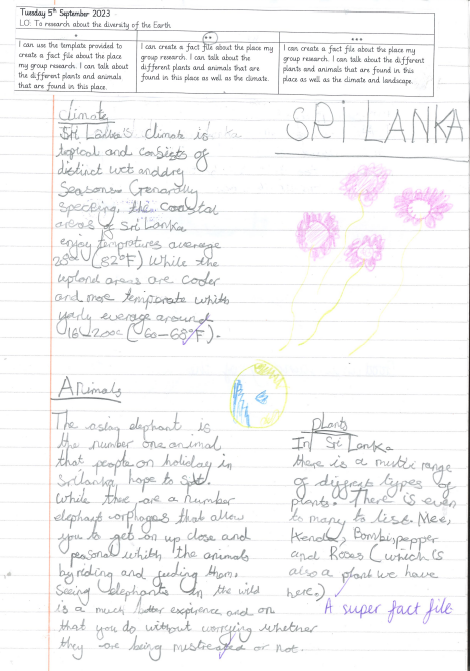 Tuesday 5th September 2023
LO: To research about the diversity of the Earth
*
I can use the template provided to
create a fact file about the place
my group research. I can talk about
the different plants and animals
that are found in this place.
**
I can create a fact file about the place my
group research. I can talk about the
different plants and animals that are
found in this place as well as the climate.
***
I can create a fact file about the place my
group research. I can talk about the different
plants and animals that are found in this
place as well as the climate and landscape.
SRI LANKA
Climate
Sri Lanka's climate is
topical and consists of
distinct wet and dry
Seasons. Genarally
specking, the coastal
areas of Sri Lanka
enjoy tempratures average
28°c (82°F) While the
upland areas are cooler
and more temperate with
yearly average around
16-20°c (60-68°F).
Animals
The asian elephant is
the number one animal
that people on holiday in
Sri lanka hope to
While there are a number
elephant orphages that allow
you to get on up close and
personal whith the animals
by riding and feeding them.
Seeing elephants in the wild
is a much better expirence and on
that you do without worrying whether
they are being mistreated or not.
Plants
In Sri Lanka
there is a range
of types of
plants. There is even
to many to list. Mee,
and Roses (which is
also a plant we have
here.)
A super fact file